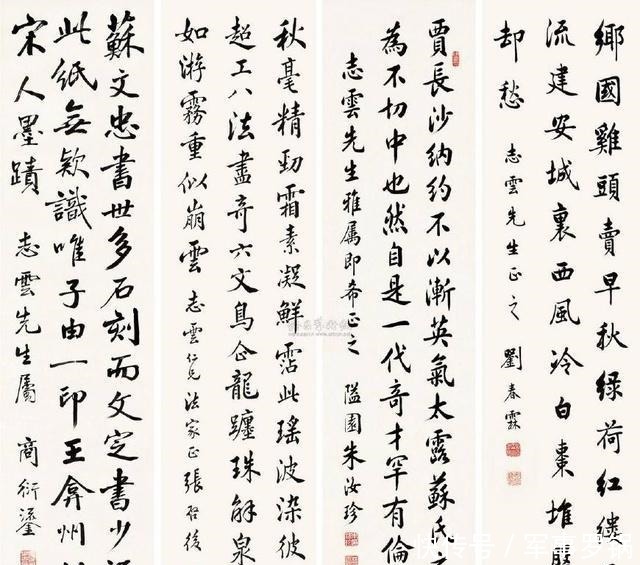 鄉國雞頭賣早秋綠荷紅縷
流建安城裏西風冷白棗堆
却愁 志雲先生正之 劉春霖
賈長沙納約不以漸英氣太露蘇氏
為不切中也然自是一代奇才罕有倫
志雲先生雅属即希正之 隘園朱汝珍
秋毫精勁霜素凝鮮霑此瑤波染彼
超工八法盡奇六文鳥企龍躔珠解泉
如游霧重似崩雲 志雲仁兄法家正 張啓後
蘇文忠書世多石刻而文定書少
此紙無欵識唯子由一印王弇州
宋人墨蹟 志雲先生屬 商衍鎏
快传号 / 军事罗锅